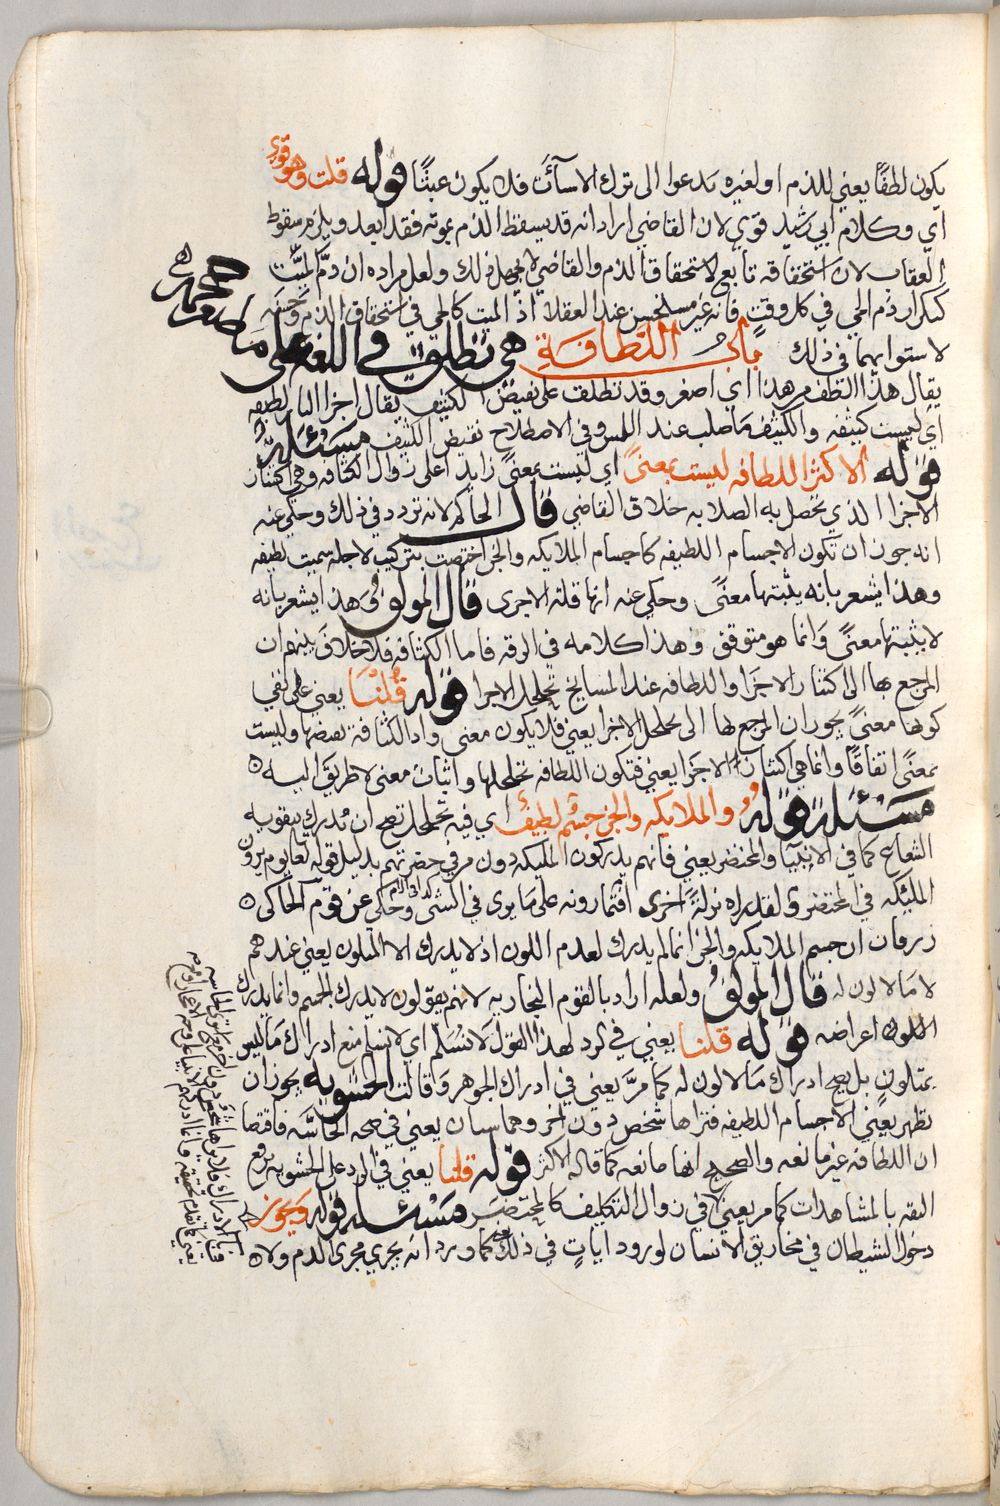 يكون لطفًا يعني للذم او لغيره يدعوا الى ترك الاسآت فلا يكون عبثًا قوله قلت وهو قوي
اي وكلام ابي رشيد قوي لان القاضي اراد انه قد يسقط الذم بموته فقد ابعد ويلزم سقوط
العقاب لان استحقاقه تابع لاستحقاق الذم والقاضي لا يجهل ذلك ولعل مراده ان ذم الميت
كتكرار ذم الحي في كل وقت فانه غير مستحسن عند العقلا اذ الميت كالحي في استحقاق الذم وحسنه
لاستوايهما في ذلك باب اللطافة هي تطلق في اللغة على
يقال هذا الطف من هذا اي اصغر وقد تطلق على نقيض الكثيف يقال اجزا النار لطيفه
اي ليست كثيفه والكثيف ما صلب عند اللمس وفي الاصطلاح نقيض الكثيف مسئلة
قوله الاكثر اللطافه ليست بمعنىً اي ليست بمعنىً زايد اعلى زوال الكثافه وهي اكتناز
الاجزا الذي تحصل به الصلابه خلاف القاضي قال الحاكم لانه تردد في ذلك وحكي عنه
انه جوز ان تكون الاجسام اللطيفه كاجسام الملايكه والجن اختصت بتركيب لاجله سميت لطيفه
وهذا يشعر بانه يثبتها معنىً وحكي عنه انها قلة الاجزى قال المولف وهذا يشعر بانه
لا يثبتها معنىً وانما هو متوقف وهذا كلامه في الرقه فاما الكثافه فلا خلاف بينهم ان
المرجع بها الى اكتناز الاجزا واللطافه عند المشايخ تخلخل الاجزا قوله قلنا يعني على نفي
كونها معنىً يجوز ان المرجع بها الى تخلخل الاجزا يعني فلا يكون معنى واذ الكثافة نقيضها وليست
بمعنًى اتفاقًا وانما هي اكتناز الاجزا يعني فتكون اللطافه تخلخلها واثبات معنى لا طريق اليه ٥
مسئلة قوله والملايكه والجن جسم لطيف اي فيه تخلخل تصح ان تدرك بتقويه
الشعاع كما في الانبيآ والمحتضر يعني فانهم يدركون المليكه دون من في حضرتهم بدليل قوله تعالى يوم يرون
المليكه في المحتضر ولقد راه نزلة اخرى افتمارونه على ما يرى في النبي وحكي عن قوم الحاكي ٥
زرقان ان جسم الملايكه والجن انما لم يدرك لعدم اللون اذ لا يدرك الا المتلون يعني عندهم
لا ما لا لون له قال المولف ولعله اراد بالقوم النجاريه لانهم يقولون لا يدرك الجسم وانما يدرك
اللون اعراضه قوله قلنا يعني في الرد لهذا القول لا نسلم اي لا نسلم منع ادراك ما ليس
بمتلون بل يصح ادراك ما لا لون له كما مرّ يعني في ادراك الجوهر وقالت الحشويه يجوز ان
تظهر يعني الاجسام اللطيفه فتراها شخص دون اخر وهما سيان يعني في صحه الحاسّه فاقتضا
ان اللطافه غير مانعه والصحيح انها مانعه كما قاله الاكثر قوله قلنا يعني في الرد على الحشويه يرفع
الثقه بالمشاهدات كما مر يعني الا في زوال التكليف كالمحتضر مسئلة قوله ويجوز
دخول الشيطان في مخاريق الانسان لورود ايات في ذلك كما ورد انه يجري مجرى الدم ولا ٥